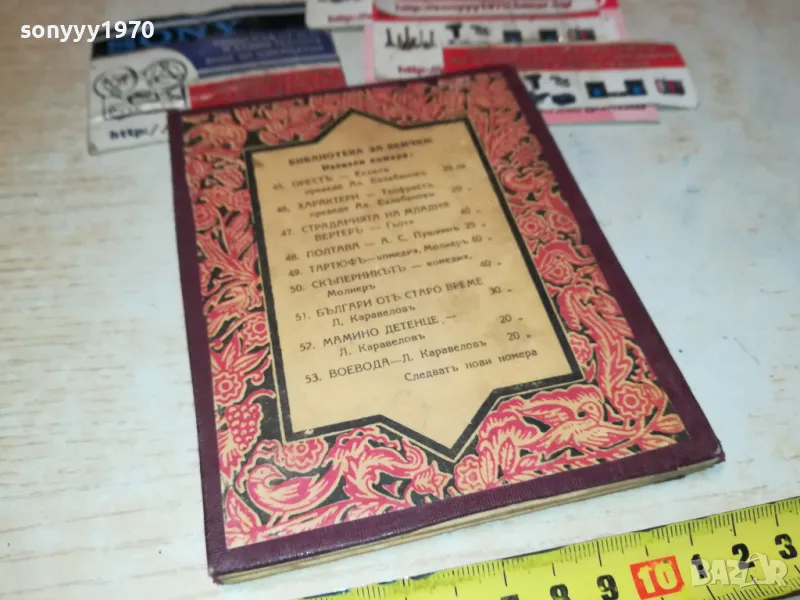 sonyyy1970
SONY
http://
http://
http://sonyyy1970.bazar.bg/
БИБЛИОТЕКА ЗА ВСИЧКИ
Излезли номера:
45. ОРЕСТЪ — Есхилъ
преведе Ал. Балабановъ 20 лв
46. ХАРАКТЕРИ — Теофрастъ
преведе Ал. Балабановъ 20 „
47. СТРАДАНИЯТА НА МЛАДИЯ
ВЕРТЕРЪ — Гьоте 40 „
48. ПОЛТАВА — А. С. Пушкинъ 25 „
49. ТАРТЮФЪ — комедия, Молиеръ 40 „
50. СКѪПЕРНИКЪТЪ — комедия,
Молиеръ 40 „
51. БЪЛГАРИ ОТЪ СТАРО ВРЕМЕ
Л. Каравеловъ 30 „
52. МАМИНО ДЕТЕНЦЕ, —
Л. Каравеловъ 20 „
53. ВОЕВОДА — Л. Каравеловъ 20 „
Следватъ нови номера
8 9 10 1 2 3
BAZAR